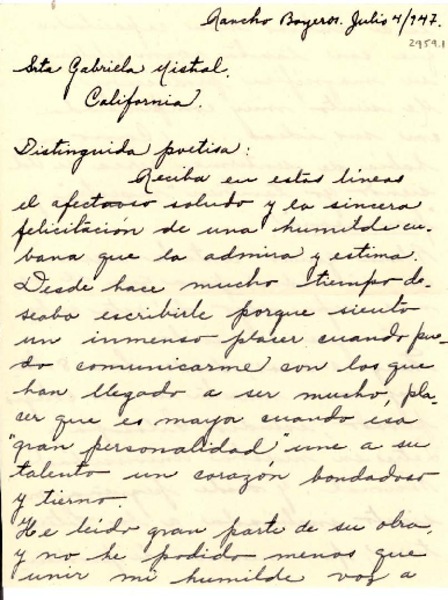 Rancho Boyeros. Julio 4/947.
2959.1
Srta Gabriela Mistral.
California.
Distinguida poetisa:
Reciba en estas líneas
el afectuoso saludo y la sincera
felicitación de una humilde cu-
bana que la admira y estima.
Desde hace mucho tiempo de-
seaba escribirle porque siento
un inmenso placer cuando pue-
do comunicarme con los que
han llegado a ser mucho, pla-
cer que es mayor cuando esa
"gran personalidad" une a su
talento un corazón bondadoso
y tierno.
He leído gran parte de su obra,
y no he podido menos que
unir mi humilde voz a